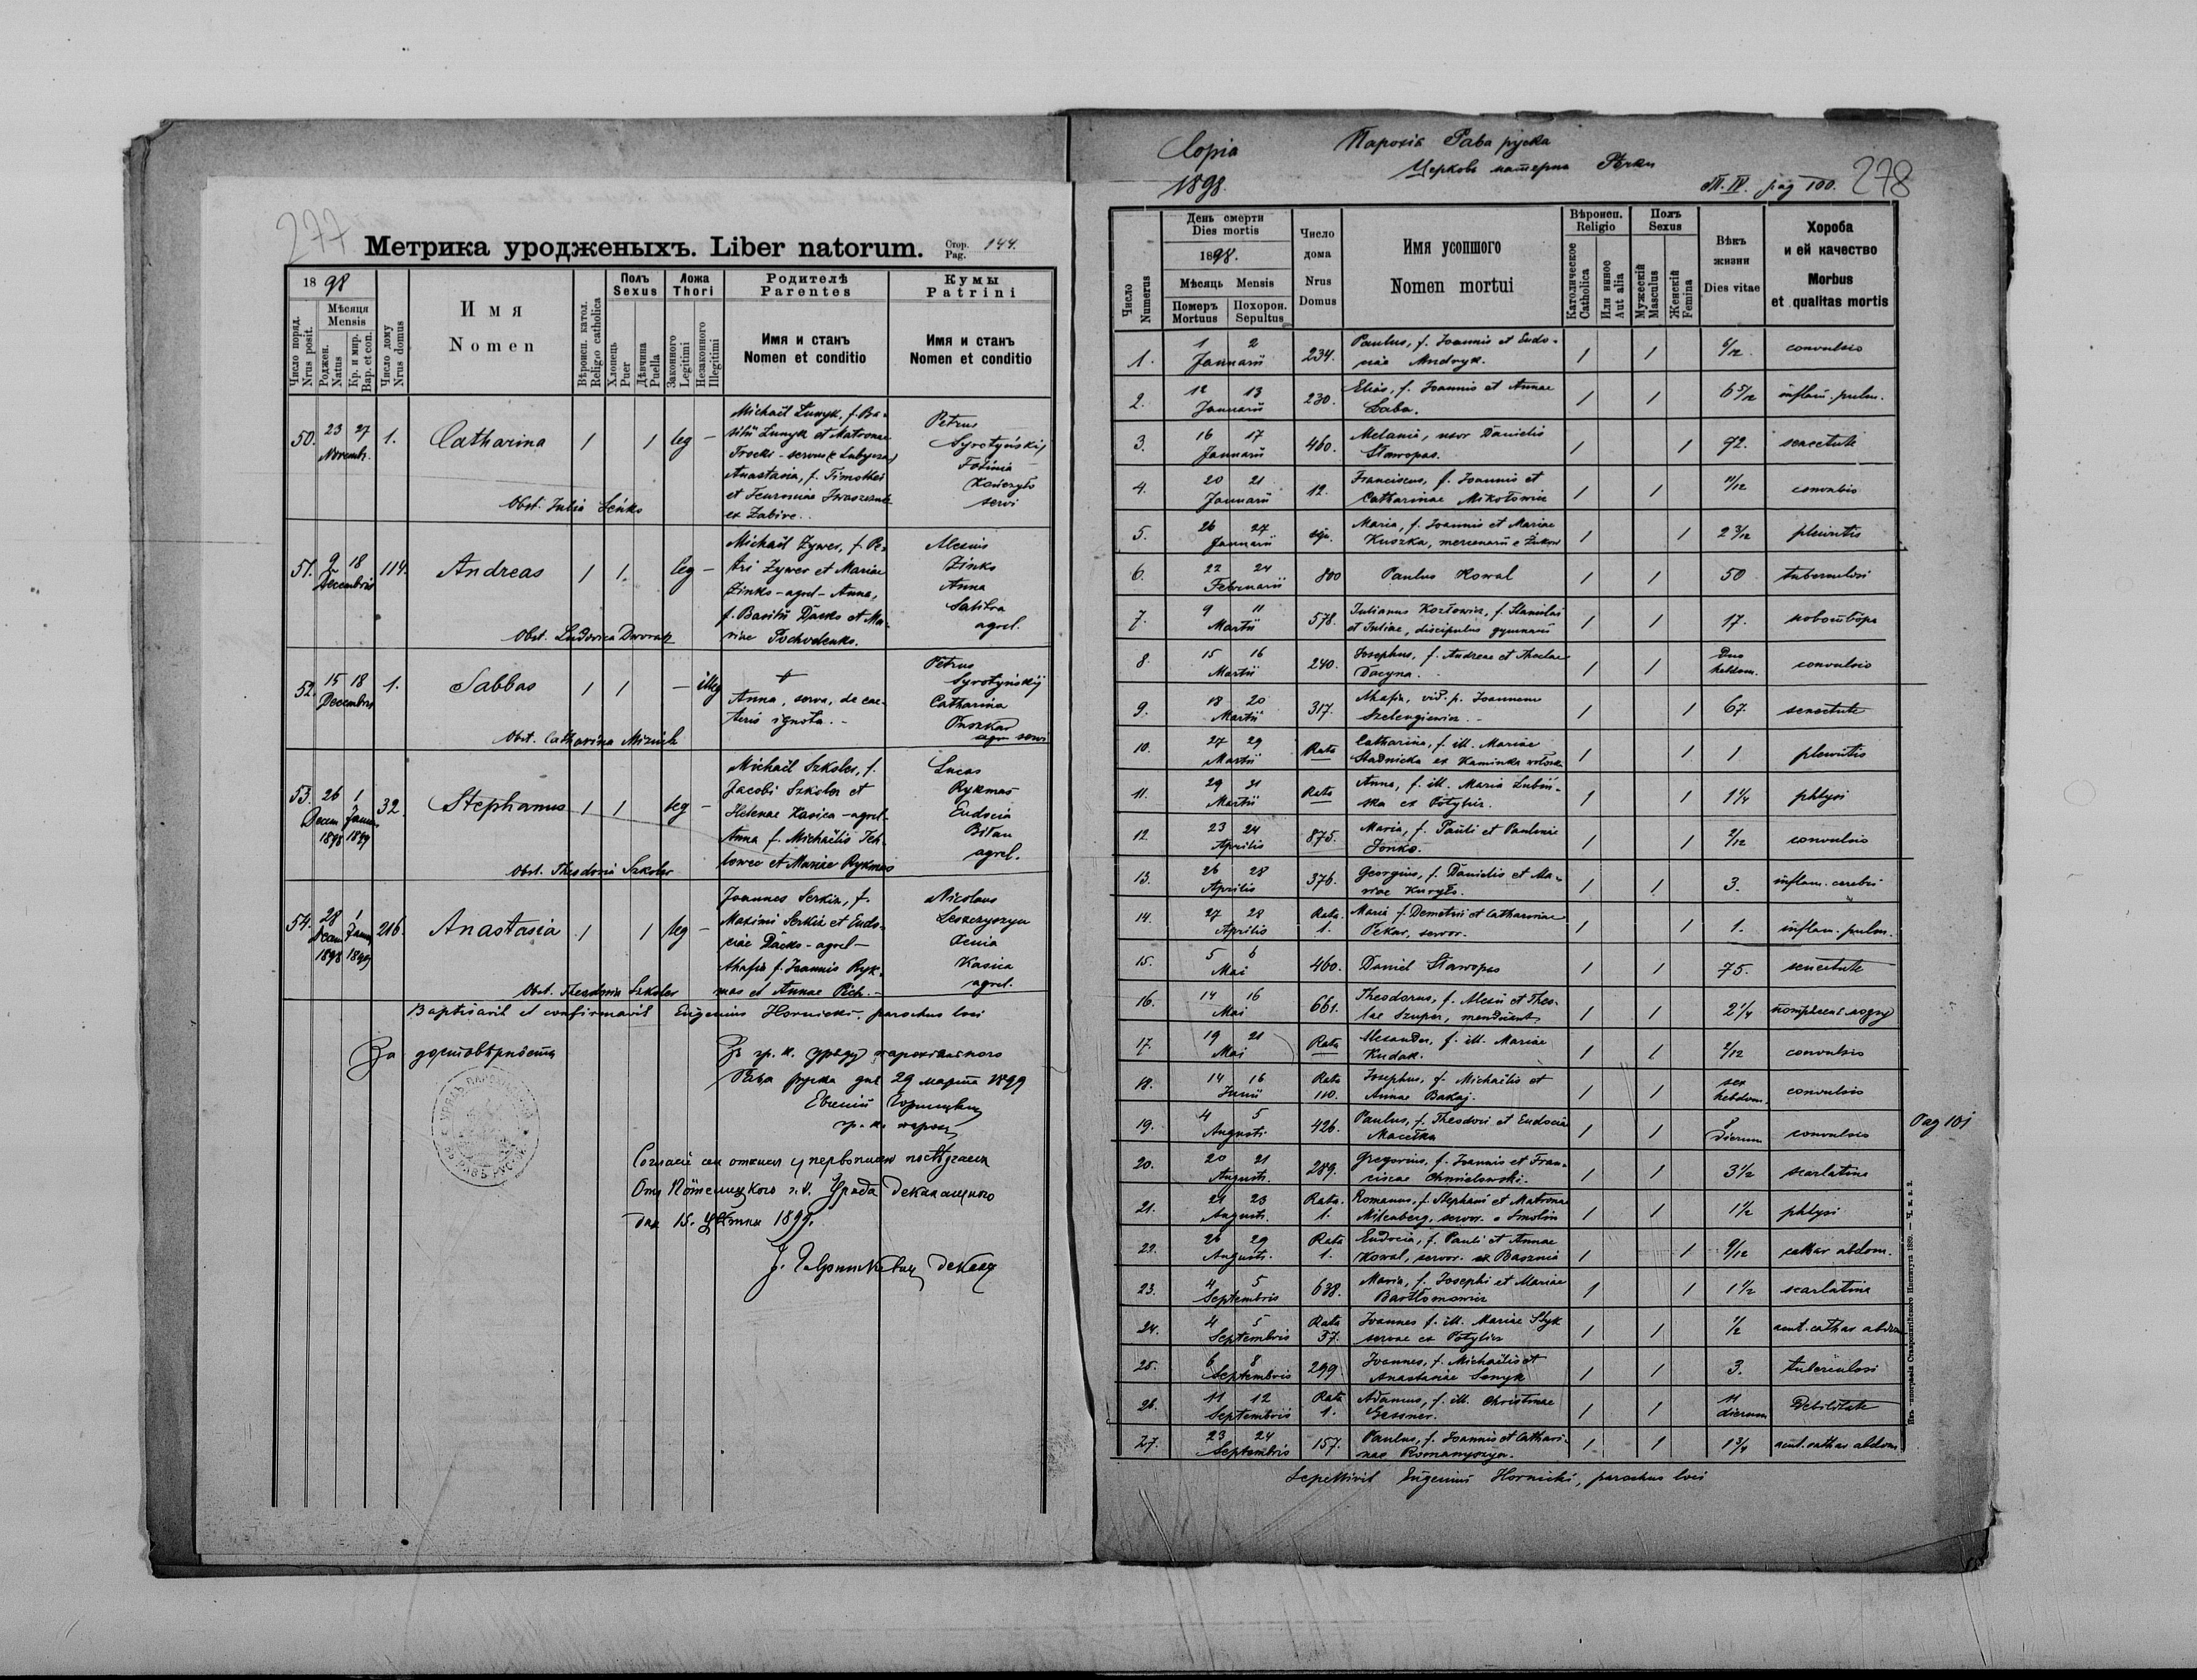 277
Метрика уродженыхъ. Liber natorum. Стор. Pag. 144.
1898
Число поряд. Nrus posit.
Мѣсяця Mensis
Роджен. Natus
Кр. и мир. Bap. et con.
Число дому Nrus domus
Имя
Nomen
Вѣроисп. катол. Religio catholica
Полъ Sexus
Хлопець Puer
Дѣвчина Puella
Ложа Thori
Законного Legitimi
Незаконного Illegitimi
Родителѣ Parentes
Имя и станъ Nomen et conditio
Кумы Patrini
Имя и станъ Nomen et conditio
50. 23 27 Novembr. 1. Catharina 1 1 leg –
Michaël Lunyk, f. Ba-
silii Lunyk et Matronae
Anastasia, f. Timothei
et Zabire.
Petrus
Syrotyńskij
servi
Obst. Julia Seńko
51. 9 18 Decembris 114. Andreas 1 1. leg –
Michaël Zywer, f. Pe-
tri Zywer et Mariae
Zinko – agrel – Anna,
f. Basilii Dacko et Ma-
riae
Alexius
Zinko
Anna
agrel.
Obst. Ludovica Dworak
52. 15 18 Decembris 1. Sabbas 1 1 – illeg
Anna, serva, de cae-
teris ignota. –
Petrus
Syrotyńskij
Catharina
Obst. Catharina
53. 26 1 Decem Januar 1898 1899 32. Stephanus 1 1 leg –
Michaël Szkoler, f.
Jacobi Szkoler et
Helenae Kasica – agrel –
Anna f. Michaëlis
et Mariae Rykmas
Lucas
Rykmas
Eudocia
Bilan
agrel.
Obst. Theodosia Szkoler
54. 28 1 Decem Januar 1898 1899 216. Anastasia 1 1 leg –
Joannes Serkiz, f.
Maximi Serkiz et Eudo-
ciae Dacko – agrel –
Ahafia f. Joannis Ryk-
mas et Annae Pich. –
Nicolaus
Leszczyszyn
Xenia
Kasica
agrel.
Obst. Theodosia Szkoler
Baptisavit et confirmavit Eugenius Hornicki, parochus loci
За достовѣрность
Зъ гр. к. уряду парохіяльного
Рава руска дня 29 марта 1899
Евгеній Горницкій
гр. к. парох
Отъ Потелицкого г. к. Уряда деканального
дня 15. Цвѣтня 1899.
Copia
1898.
Парохія Рава руска
Церковь матерна
T. IV. pag 100. 278
Число Numerus
День смерти Dies mortis
1898.
Мѣсяць Mensis
Померъ Mortuus
Похорон. Sepultus
Число дома Nrus Domus
Имя усопшого
Nomen mortui
Вѣроисп. Religio
Католическое Catholica
Или инное Aut alia
Полъ Sexus
Мужескій Masculus
Женскій Femina
Вѣкъ жизни Dies vitae
Хороба и ей качество
Morbus et qualitas mortis
1. 1 2 Januarii 234. Paulus, f. Joannis et Eudo-
ciae Andryk. 1 1 convulsio
2. 12 13 Januarii 230. Elias, f. Joannis et Annae
Baba. 1 1 6 5/12 inflam. pulm.
3. 16 17 Januarii 460. Melania, uxor Danielis
Stawopas. 1 1 72. senectute
4. 20 21 Januarii 12. Franciscus, f. Joannis et
Catharinae Mikołowicz 1 1 11/12 convulsio
5. 26 27 Januarii Maria, f. Joannis et Mariae
Kuszka, mercenarii e Żukow 1 1 2 3/12 pleuritis
6. 22 24 Februarii 800 Paulus Kowal 1 1 50 tuberculosi
7. 9 11 Martii 578. Julianus Kozłowicz, f. Stanislai
et Juliae, discipulus gymnasii 1 1 17. новотвора
8. 15 16 Martii 240. Josephus, f. Andreae et Theclae
Dacyna. 1 1 Duo hebdom. convulsio
9. 18 20 Martii 317. Ahafia, vid. p. Joannem
Szelengiewicz. – 1 1 67. senectute
10. 27 29 Martii Rata Catharina, f. ill. Mariae
Stadnicka ex Kaminka wołoska 1 1 1 pleuritis
11. 29 31 Martii Rata Anna, f. ill. Maria Lubiń-
ska ex Potylicz. 1 1 1 1/4 phtysi
12 23 24 Aprilis 875. Maria, f. Pauli et Paulinae
Jonko. 1 1 2/12 convulsio
13. 26 28 Aprilis 376. Georgius, f. Danielis et Ma-
riae Kuryło. 1 1 3. inflam. cerebri
14. 27 28 Aprilis Rata. 1. Maria f. Demetrii et Catharinae
Pekar, servor. 1 1 1. inflam. pulm.
15. 5 6 Mai 460. Daniel Stawopas 1 1 75. senectute
16. 14 16 Mai 661. Theodorus, f. Alexii et Thec-
lae Szuper, mendicant. 1 1 2 1/4
17. 19 21 Mai Rata Alexander, f. ill. Mariae
Kudak. 1 1 2/12 convulsio
18. 14 16 Junii Rata 110. Josephus, f. Michaëlis et
Annae Bakaj. 1 1 sex hebdom. convulsio
19. 4 5 Augusti 426. Paulus, f. Theodori et Eudociae
Macełka 1 1 8 dierum convulsio
Pag 101
20. 20 21 Augusti. 289. Gregorius, f. Joannis et Fran-
ciscae Chmielowski. 1 1 3 1/2 scarlatina
21. 21 23 Augusti. Rata. 1. Romanus, f. Stephani et Matronae
Milenberg, servor. e Smolin 1 1 1 1/2 phtysi
22. 26 29 Augusti. Rata 1. Eudocia, f. Pauli et Annae
Kowal, servor. ex Basznia 1 1 9/12 cathar abdom.
23. 4 5 Septembris 638. Maria, f. Josephi et Mariae
Bartłomowicz 1 1 1 1/2 scarlatina
24. 4 5 Septembris Rata 37. Joannes f. ill. Mariae Styk
servae ex Potylicz 1 1 1/2 acut. cathar abdom
25. 6 8 Septembris 299 Joannes, f. Michaëlis et
Anastasiae Senyk 1 1 3. tuberculosi
26. 11 12 Septembris Rata 1. Adamus, f. ill. Christinae
Gessner. 1 1 11 dierum Debilitate
27. 23 24 Septembris 157. Paulus, f. Joannis et Cathari-
nae Romanyszyn. 1 1 1 3/4 acut. cathar abdom
Sepelivit Eugenius Hornicki, parochus loci
Изъ типографіи Ставропигійского Института 1889. — Ч. к. з. 2.